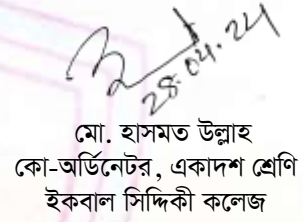 28.04.24
মো. হাসমত উল্লাহ
কো-অর্ডিনেটর, একাদশ শ্রেণি
ইকবাল সিদ্দিকী কলেজ